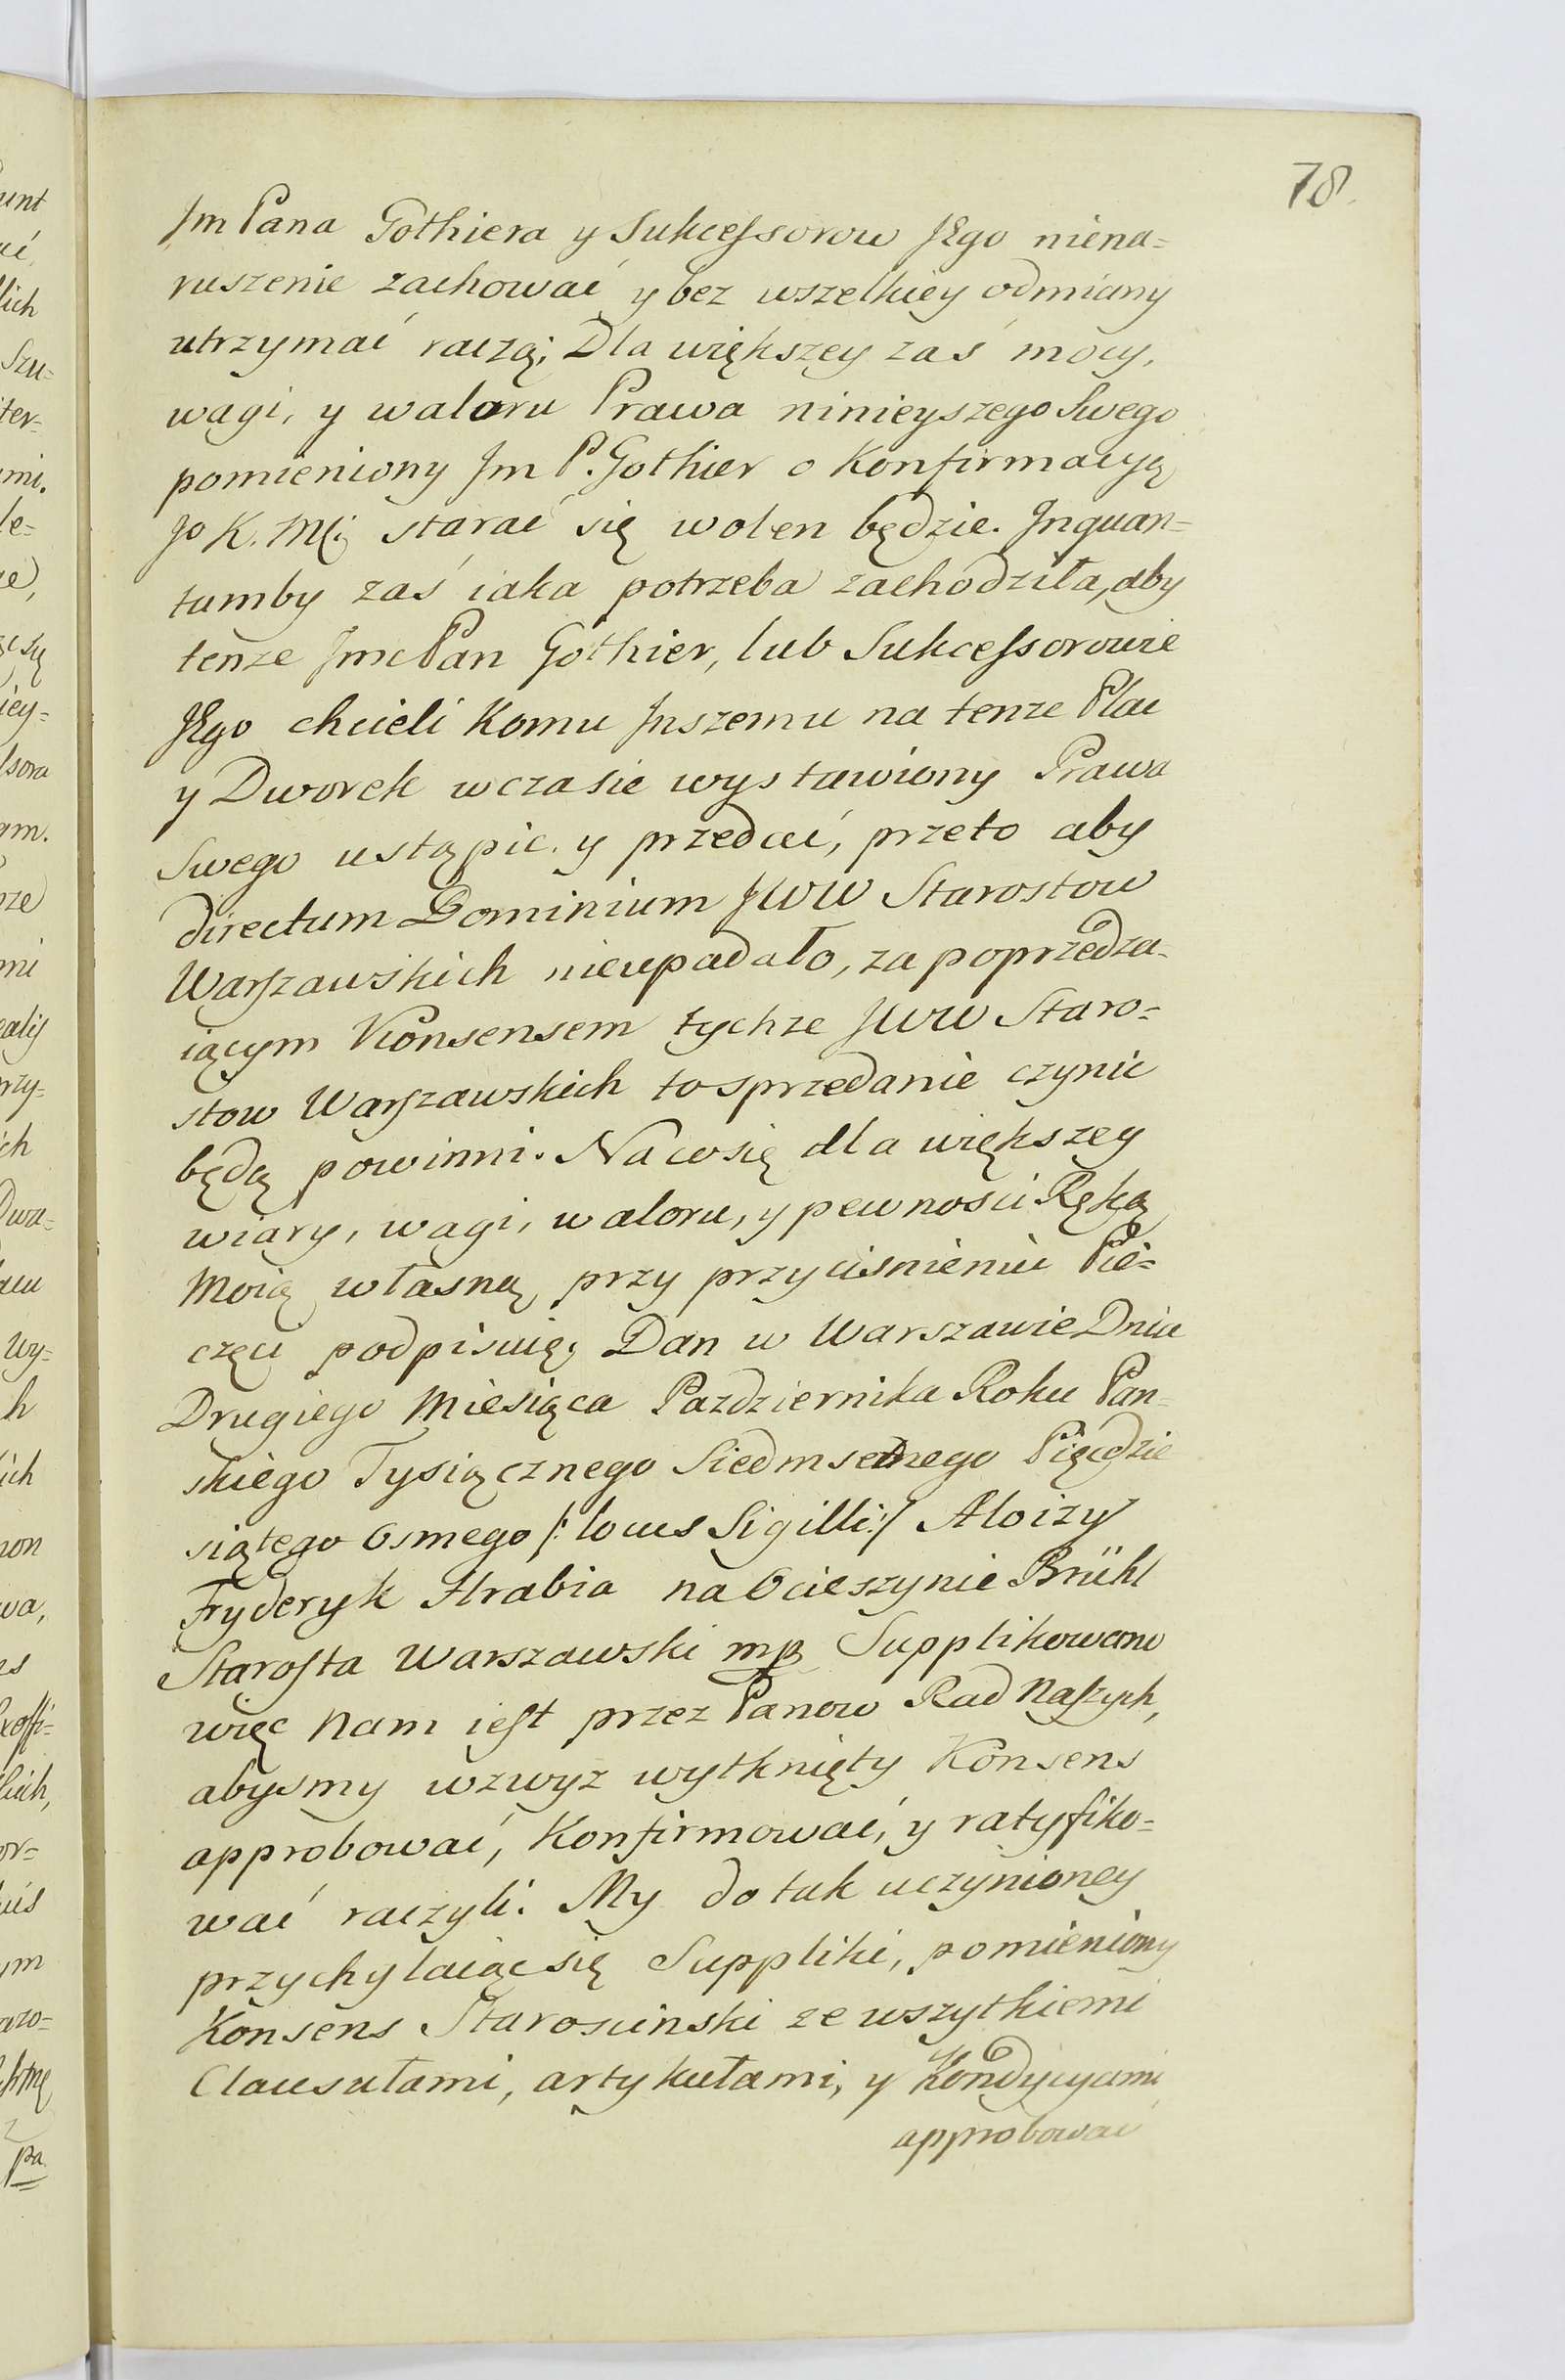 78.
Jm Pana Gothiera y Sukcessorow JEgo niena=
ruszenie zachować y bez wszelkiey odmiany
utrzymać raczą; Dla większey zaś mocy,
wagi, y waloru Prawa ninieyszego Swego
pomieniony Jm P. Gothier o Konfirmacyą
Jo K. Mći starać się wolen będzie. Inquan=
tumby zaś iaka potrzeba zachodziła, aby
tenze Jmc Pan Gothier, lub Sukcessorowie
JEgo chcieli Komu Inszemu na tenze Plac
y Dworek w czasie wystawiony Prawa
Swego ustąpic y przedać, przeto aby
directum Dominium JWW Starostow
Warszawskich nieupadało, za poprzedza=
iącym Konsensem tychze JWW Staro=
stow Warszawskich to sprzedanie czynic
będą powinni. Na co się dla większey
wiary, wagi, waloru, y pewnosci Ręką
Moią własną przy przycisnieniu Pie=
częci podpisuię, Dan w Warszawie Dnia
Drugiego Miesiąca Pazdziernika Roku Pan=
skiego Tysiącznego Siedmsetnego Pięcdzie
siątego Osmego /: locus Sigilli :/ Aloizy
Fryderyk Hrabia na Ocieszynie Brühl
Starosta Warszawski mp Supplikowano
więc Nam iest przez Panow Rad Naszych,
abysmy wzwyz wytknięty Konsens
approbować, Konfirmować, y ratyfiko=
wać raczyli. My do tak uczynioney
przychylaiąc się Suppliki, pomieniony
Konsens Starosciński ze wszytkiemi
Clausułami, artykułami, y Kondycyami
approbować